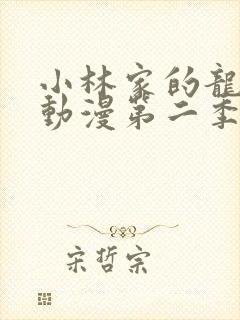 小林家的龍
動漫第二季
宋哲宗